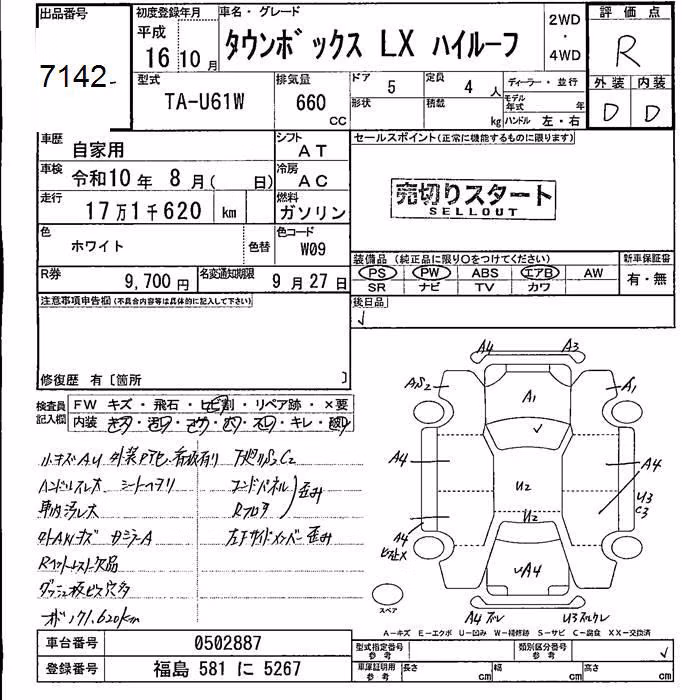 出品番号
7142
初度登録年月
平成
16 10 月
車名・グレード
タウンボックス LX ハイルーフ
2WD
・
4WD
評価点
R
型式
TA-U61W
排気量
660
CC
ドア
5
定員
4 人
ディーラー・並行
形状
積載
kg
モデル年式
年
ハンドル 左・右
外装 内装
D D
車歴
自家用
シフト
AT
セールスポイント(正常に機能するものに限ります)
車検
令和10年 8月( 日)
冷房
AC
売切りスタート
SELLOUT
走行
17万1千620 km
燃料
ガソリン
色
ホワイト
色替
色コード
W09
装備品 (純正品に限り○をつけてください)
新車保証書
PS PW ABS エアB AW
有・無
SR ナビ TV カワ
R券
9,700円
名変通知期限
9月27日
後日品
注意事項申告欄(不具合内容等は具体的に記入して下さい)
修復歴 有〔箇所 〕
検査員記入欄
FW キズ・飛石・ヒビ割・リペア跡・×要
内装
キレ
小キズAU 外装PTセ、看板有り 下廻りS2C2
ハンドルスレ大 シートヘタリ
コンドパネル
歪み
車内汚レ大
Rフロア
左下サイドメンバー歪み
Rヘッドレスト欠品
ダッシュ板ビス穴多
171,620km
A4 A3
A1
A1
A4
A4
U2
U2
U3
C3
A4
A4
スペア
A4
U3
A-キズ E-エクボ U-凹み W-補修跡 S-サビ C-腐食 XX-交換済
車台番号
0502887
型式指定番号
参考
類別区分番号
参考
登録番号
福島 581 に 5267
車庫証明用
参考
長さ cm
幅 cm
高さ cm